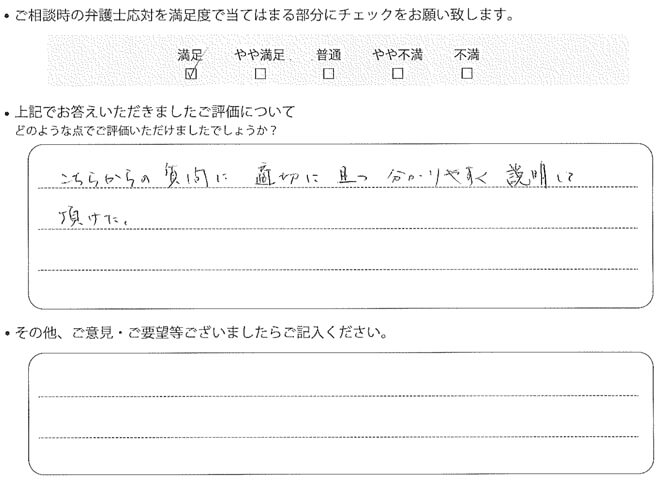 • ご相談時の弁護士応対を満足度で当てはまる部分にチェックをお願い致します。
満足 やや満足 普通 やや不満 不満
☑ □ □ □ □
• 上記でお答えいただきましたご評価について
どのような点でご評価いただけましたでしょうか？
こちらからの質問に 適切に 且つ 分かりやすく 説明して
頂けた。
• その他、ご意見・ご要望等ございましたらご記入ください。